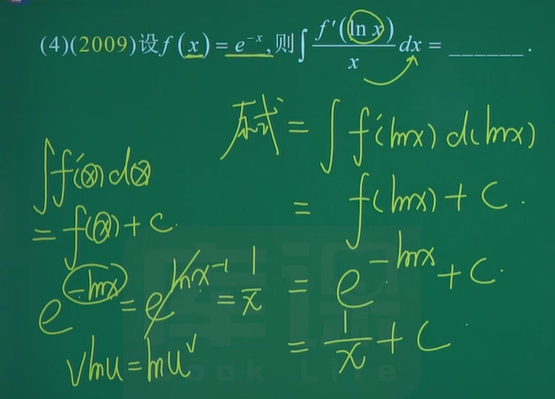 (4)(2009)设f(x)=e^{-x},则∫\frac{f'(ln x)}{x}dx=______.
原式=∫f'(lnx)d(lnx)
=f(lnx)+C.
=e^{-lnx}+C.
=\frac{1}{x}+C.
∫f'(x)dx
=f(x)+C.
e^{-lnx}=e^{lnx^{-1}}=\frac{1}{x}
vlnu=lnu^v